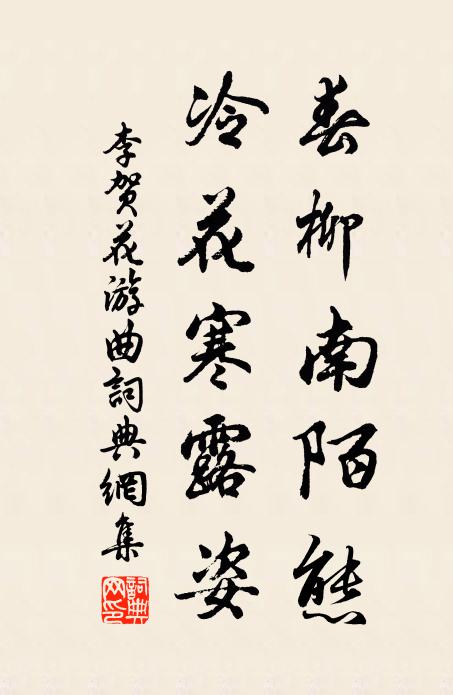 春柳南陌態
冷花寒露姿
李賀花游曲詞典網集
詞典网印